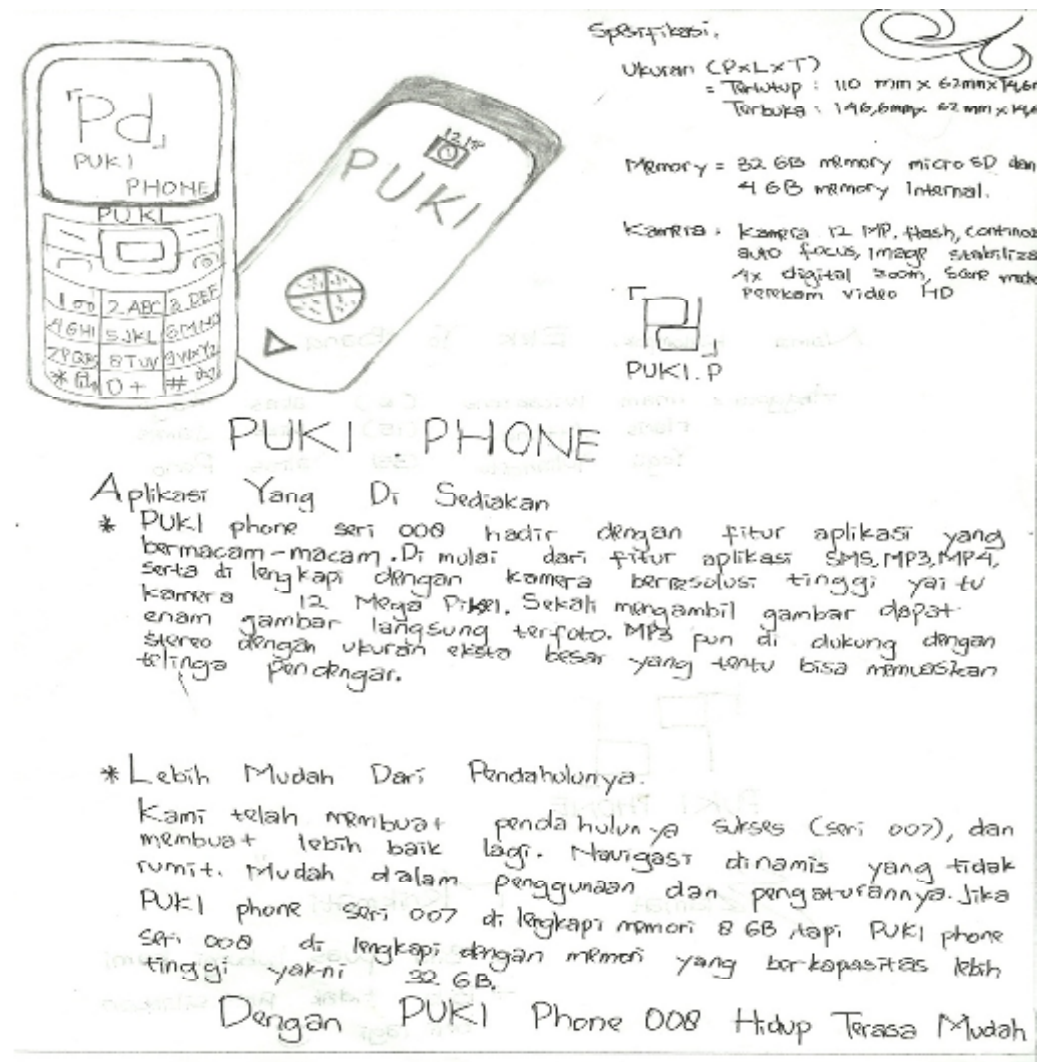 Spesifikasi.
Ukuran (PxLxT)
= Tertutup : 110 mm x 62mm x 14,6m
Terbuka : 146,6mm x 62 mm x 14,6
Memory = 32 GB memory micro SD dan
4 GB memory Internal.
Kamera : Kamera 12 MP, flash, continos
auto focus, image stabiliza
4x digital zoom, Scene mode
Perekam video HD
PUKI.P
Pd
PUKI
PHONE
PUKI
1 oo 2 ABC 3 DEF
4 GHI 5 JKL 6 MNO
7 PQRS 8 TUV 9 WXYZ
* 0 + #
12 MP
PUKI
PUKI PHONE
Aplikasi Yang Di Sediakan
* PUKI phone seri 008 hadir dengan fitur aplikasi yang
bermacam-macam. Di mulai dari fitur aplikasi SMS, MP3, MP4,
serta di lengkapi dengan kamera berresolusi tinggi yai tu
kamera 12 Mega Piksel. Sekali mengambil gambar dapat
enam gambar langsung terfoto. MP3 pun di dukung dengan
stereo dengan ukuran eksta besar yang tentu bisa memuaskan
telinga pendengar.
* Lebih Mudah Dari Pendahulunya.
Kami telah membuat pendahulun ya sukses (seri 007), dan
membuat lebih baik lagi. Navigasi dinamis yang tidak
rumit. Mudah dalam penggunaan dan pengaturannya. Jika
PUKI phone seri 007 di lengkapi memori 8 GB, tapi PUKI phone
seri 008 di lengkapi dengan memori yang berkapasitas lebih
tinggi yakni 32 GB.
Dengan PUKI Phone 008 Hidup Terasa Mudah